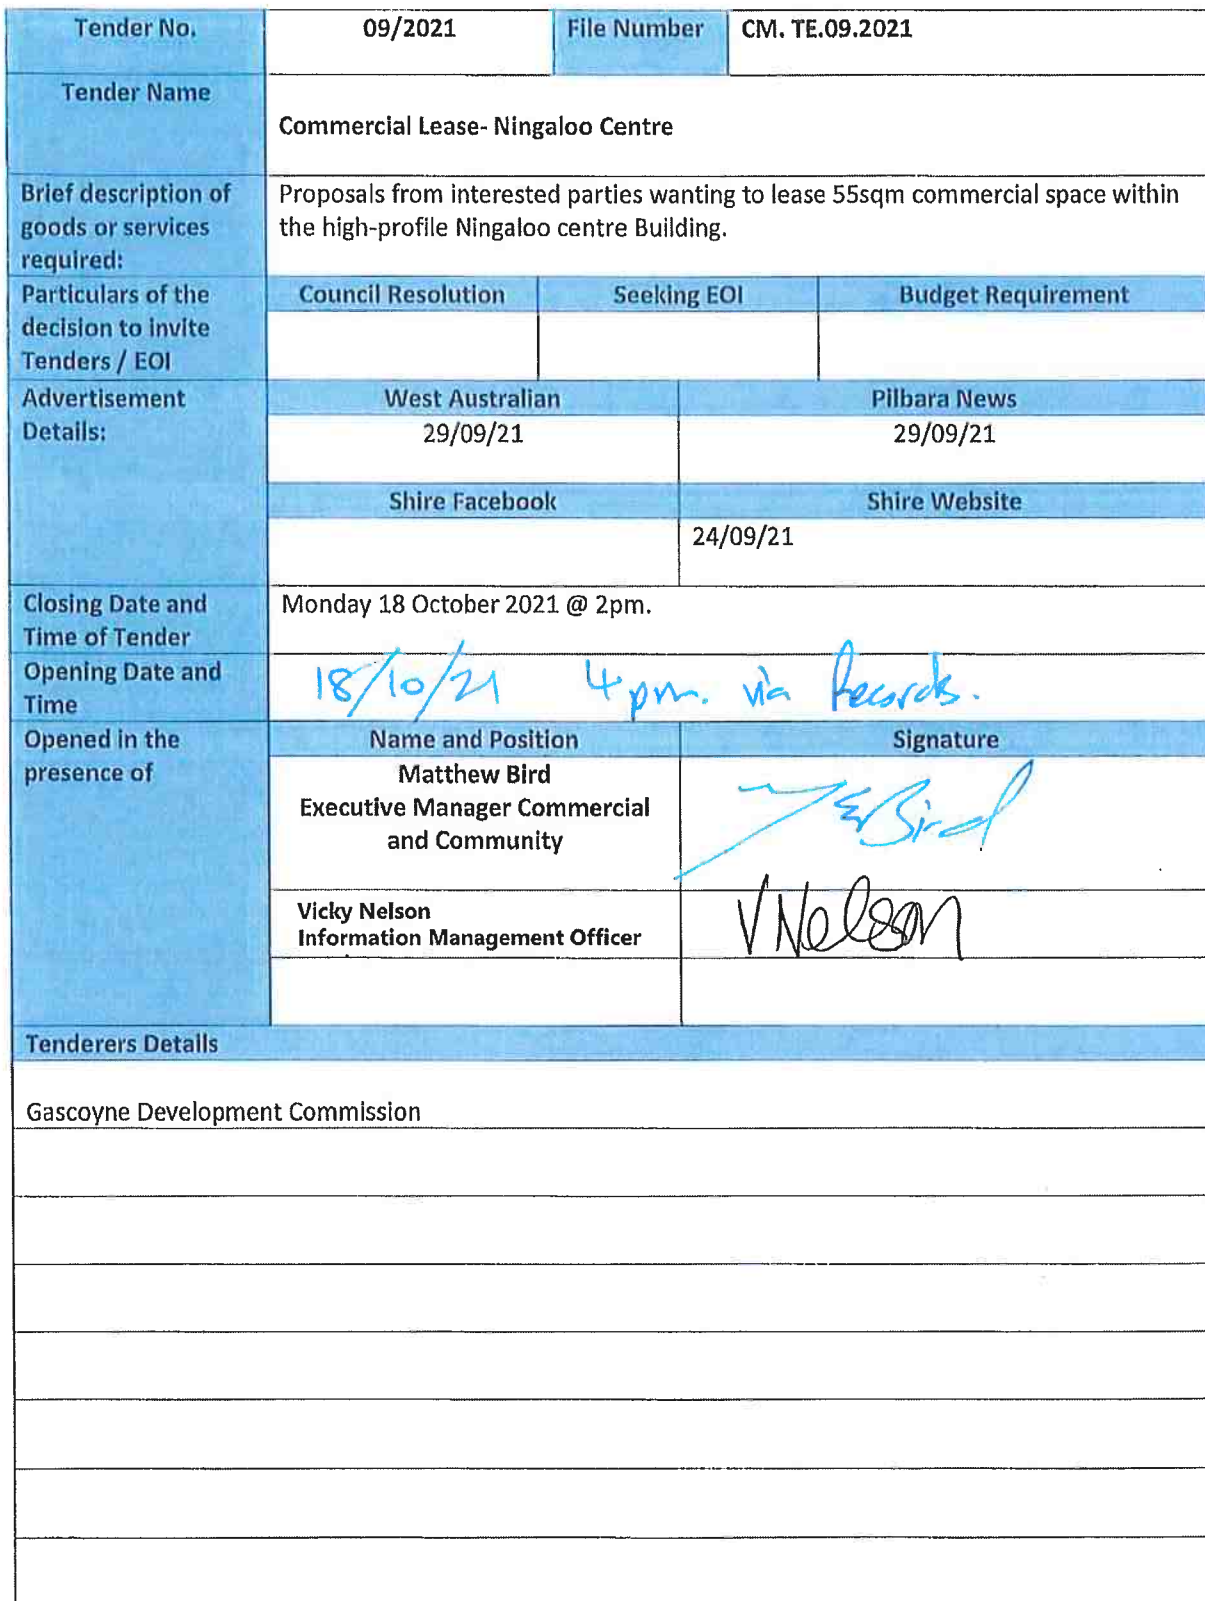 Tender No. 09/2021 File Number CM. TE.09.2021
Tender Name
Commercial Lease- Ningaloo Centre
Brief description of
goods or services
required:
Proposals from interested parties wanting to lease 55sqm commercial space within
the high-profile Ningaloo centre Building.
Particulars of the
decision to invite
Tenders / EOI
Council Resolution Seeking EOI Budget Requirement
Advertisement
Details:
West Australian Pilbara News
29/09/21 29/09/21
Shire Facebook Shire Website
24/09/21
Closing Date and
Time of Tender
Monday 18 October 2021 @ 2pm.
Opening Date and
Time
18/10/21 4pm. via Records.
Opened in the
presence of
Name and Position Signature
Matthew Bird
Executive Manager Commercial
and Community
Bird
Vicky Nelson
Information Management Officer
V Nelson
Tenderers Details
Gascoyne Development Commission